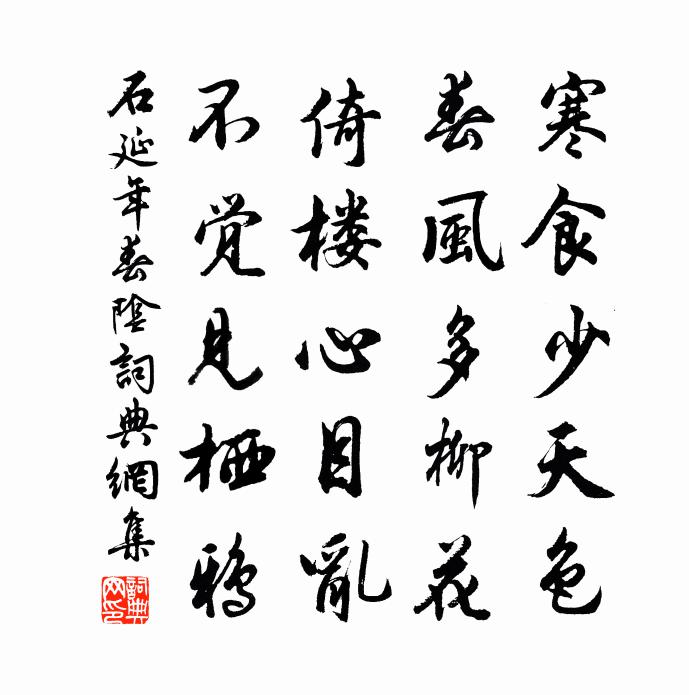 寒食少天色
春風多柳花
倚楼心目亂
不觉見栖鴉
石延年春陰詞典網集
詞典网印